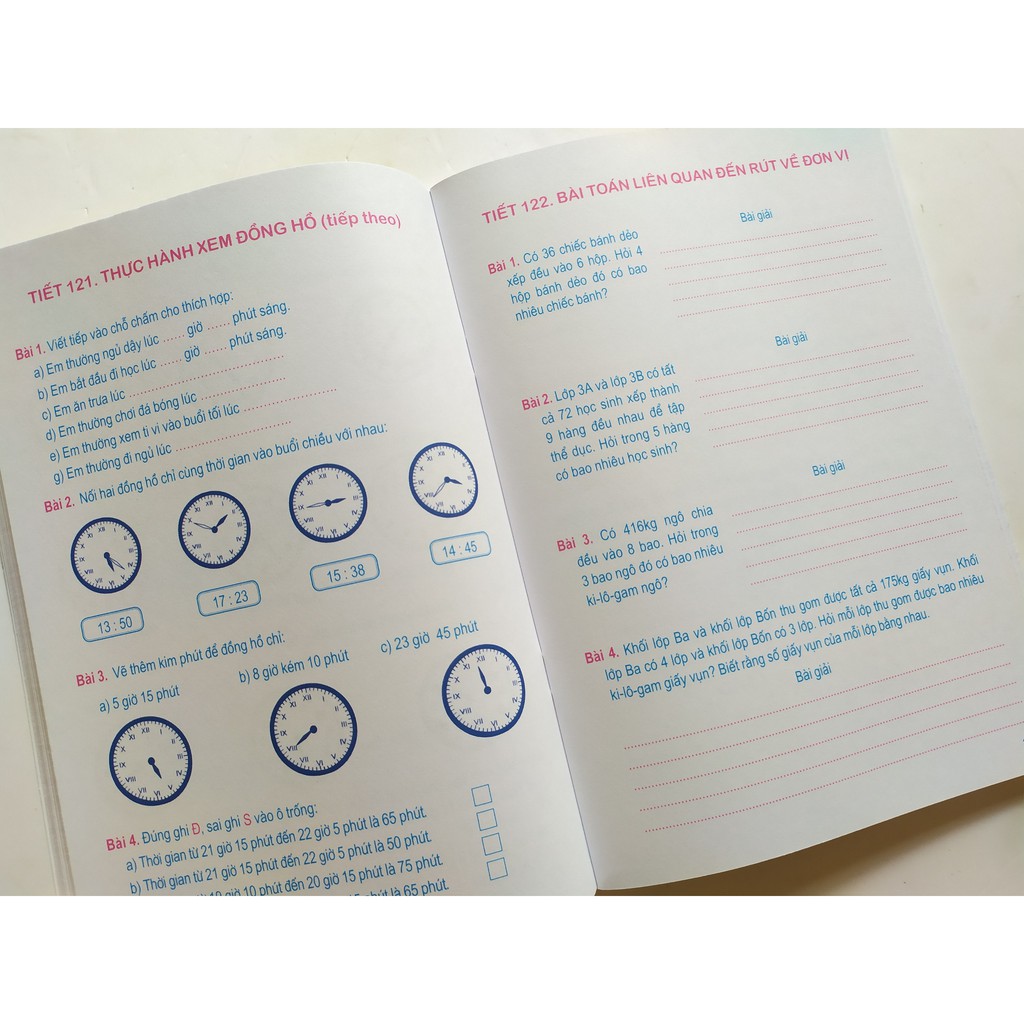 TIẾT 121. THỰC HÀNH XEM ĐỒNG HỒ (tiếp theo)
Bài 1. Viết tiếp vào chỗ chấm cho thích hợp:
a) Em thường ngủ dậy lúc ...... giờ ...... phút sáng.
b) Em bắt đầu đi học lúc ...... giờ ...... phút sáng.
c) Em ăn trưa lúc
d) Em thường chơi đá bóng lúc
e) Em thường xem ti vi vào buổi tối lúc
g) Em thường đi ngủ lúc
Bài 2. Nối hai đồng hồ chỉ cùng thời gian vào buổi chiều với nhau:
13 : 50
17 : 23
15 : 38
14 : 45
Bài 3. Vẽ thêm kim phút để đồng hồ chỉ:
a) 5 giờ 15 phút
b) 8 giờ kém 10 phút
c) 23 giờ 45 phút
Bài 4. Đúng ghi Đ, sai ghi S vào ô trống:
a) Thời gian từ 21 giờ 15 phút đến 22 giờ 5 phút là 65 phút.
b) Thời gian từ 21 giờ 15 phút đến 22 giờ 5 phút là 50 phút.
giờ 10 phút đến 20 giờ 15 phút là 75 phút.
phút là 65 phút.
TIẾT 122. BÀI TOÁN LIÊN QUAN ĐẾN RÚT VỀ ĐƠN VỊ
Bài 1. Có 36 chiếc bánh dẻo
xếp đều vào 6 hộp. Hỏi 4
hộp bánh dẻo đó có bao
nhiêu chiếc bánh?
Bài giải
Bài 2. Lớp 3A và lớp 3B có tất
cả 72 học sinh xếp thành
9 hàng đều nhau để tập
thể dục. Hỏi trong 5 hàng
có bao nhiêu học sinh?
Bài giải
Bài 3. Có 416kg ngô chia
đều vào 8 bao. Hỏi trong
3 bao ngô đó có bao nhiêu
ki-lô-gam ngô?
Bài giải
Bài 4. Khối lớp Ba và khối lớp Bốn thu gom được tất cả 175kg giấy vụn. Khối
lớp Ba có 4 lớp và khối lớp Bốn có 3 lớp. Hỏi mỗi lớp thu gom được bao nhiêu
ki-lô-gam giấy vụn? Biết rằng số giấy vụn của mỗi lớp bằng nhau.
Bài giải